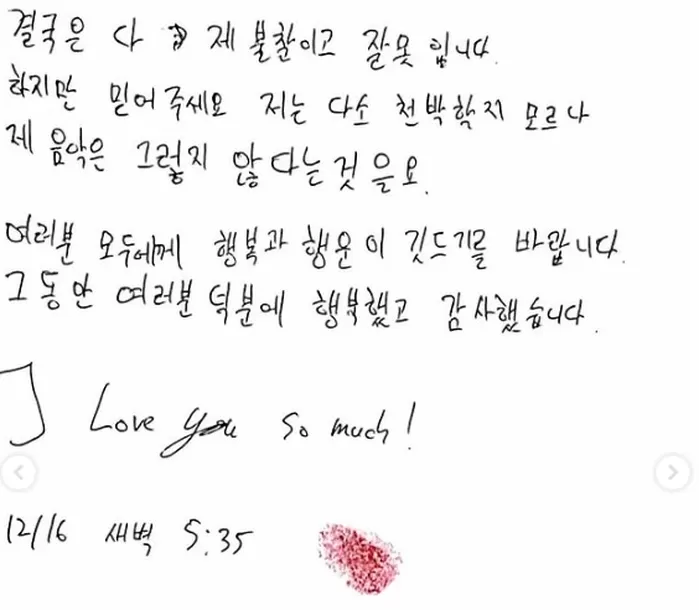 결국은 다 제 불찰이고 잘못입니다.
하지만 믿어주세요 저는 다소 천박할지 모르나
제 음악은 그렇지 않다는것을요.
여러분 모두에게 행복과 행운이 깃드기를 바랍니다.
그동안 여러분 덕분에 행복했고 감사했습니다.
I Love you so much!
12/16 새벽 5:35